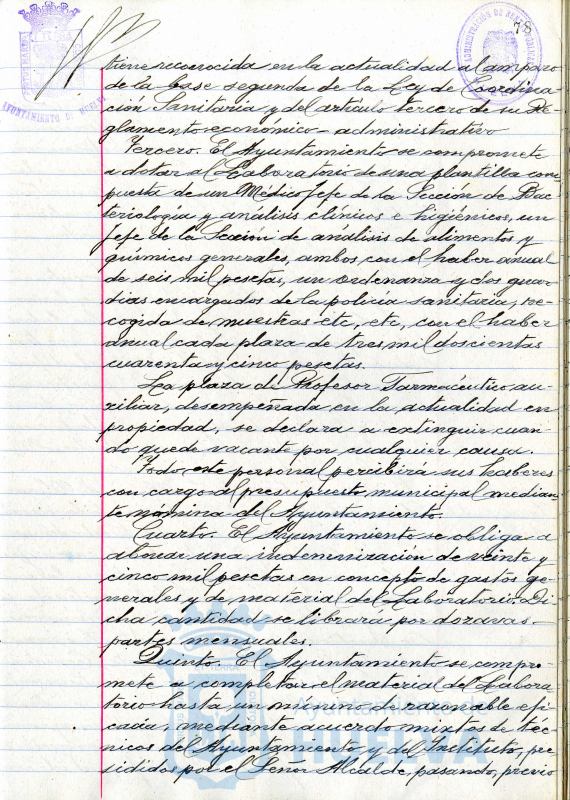 78
AYUNTAMIENTO DE HUELVA
tiene reconocida en la actualidad al amparo
de la base segunda de la Ley de Coordina
ción Sanitaria y del artículo tercero de su Re
glamento económico-administrativo
Tercero. El Ayuntamiento se compromete
a dotar al Laboratorio de una plantilla com
puesta de un Médico Jefe de la Sección de Bac
teriología y análisis clínicos e higiénicos, un
Jefe de la Sección de análisis de alimentos y
químicos generales, ambos con el haber anual
de seis mil pesetas, un ordenanza y dos guar
dias encargados de la policía sanitaria, re
cogida de muestras etc, etc, con el haber
anual cada plaza de tres mil doscientas
cuarenta y cinco pesetas.
La plaza de Profesor Farmacéutico au
xiliar, desempeñada en la actualidad en
propiedad, se declara a extinguir cuan
do quede vacante por cualquier causa.
Todo este personal percibirá sus haberes
con cargo al presupuesto municipal median
te nómina del Ayuntamiento.
Cuarto. El Ayuntamiento se obliga a
abonar una indemnización de veinte y
cinco mil pesetas en concepto de gastos ge
nerales y de material del Laboratorio. Di
cha cantidad se librará por dozavas
partes mensuales.
Quinto. El Ayuntamiento se compro-
mete a completar el material del Labora
torio hasta un mínimo de razonable efi
cacia, mediante acuerdo mixto de téc
nicos del Ayuntamiento y del Instituto, pre
sididos por el Señor Alcalde, pasando, previo
Ayuntamiento de
HUELVA